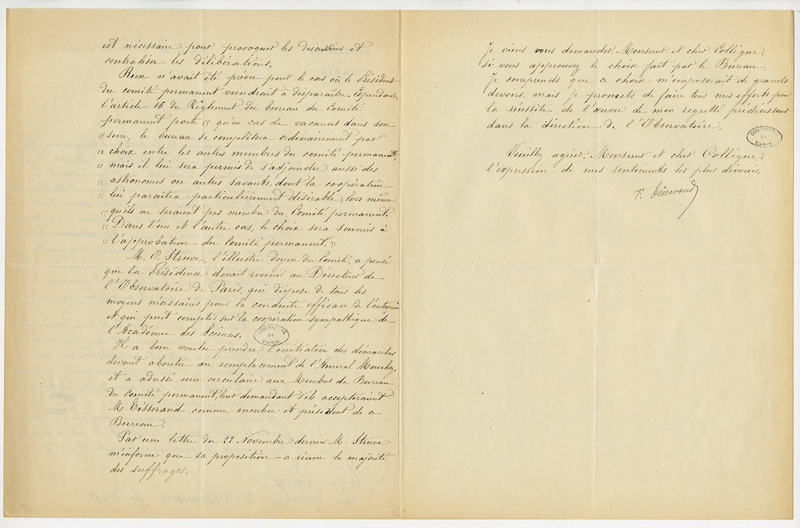 est nécessaire pour provoquer les discussions et
centraliser les délibérations.
Rien n'avait été prévu pour le cas où le Président
du comité permanent viendrait à disparaître. Cependant
l'article 16 du Règlement du bureau du Comité
permanent porte « qu'en cas de vacance dans son
« sein, le bureau se complètera ordinairement par
« choix entre les autres membres du comité permanent,
« mais il lui sera permis de s'adjoindre aussi des
« astronomes ou autres savants, dont la coopération
« lui paraîtra particulièrement désirable, lors même
« qu'ils ne seraient pas membre du Comité permanent.
« Dans l'un et l'autre cas, le choix sera soumis à
« l'approbation du Comité permanent. »
M. O. Struve, l'illustre doyen du Comité, a pensé
que la Présidence devait revenir au Directeur de
l'Observatoire de Paris, qui dispose de tous les
moyens nécessaires pour la conduite efficace de l'entreprise
et qui peut compter sur la coopération sympathique de
l'Académie des Sciences.
Il a bien voulu prendre l'initiative des démarches
devant aboutir au remplacement de l'Amiral Mouchez,
et a adressé une circulaire aux Membres du Bureau
du Comité permanent, leur demandant s'ils accepteraient
M. Tisserand comme membre et président de ce
Bureau.
Par une lettre du 22 Novembre dernier M. Struve
m'informe que sa proposition a réuni la majorité
des suffrages.
Je viens vous demander, Monsieur et cher Collègue,
si vous approuvez le choix fait par le Bureau.
Je comprends que ce choix m'imposerait de grands
devoirs, mais je promets de faire tous mes efforts pour
la réussite de l'œuvre de mon regretté prédécesseur
dans la direction de l'Observatoire.
Veuillez agréer, Monsieur et cher Collègue,
l'expression de mes sentiments les plus dévoués,
F. Tisserand